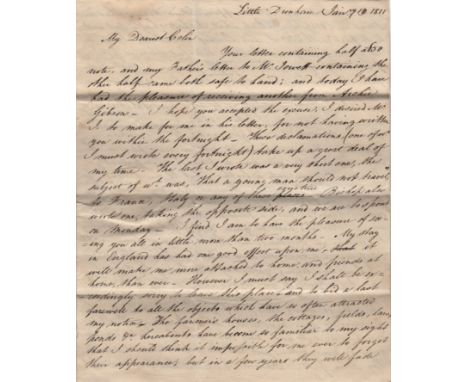 Little Dunham Jan 7 1811
My Dearest Colin
Your letter containing half a £30
note, and my Father's letter to Mr Jowett containing the
other half came both safe to hand; and today I have
had the pleasure of receiving another from Archie
Gibson - I hope you accepted the excuse, I desired Mr
J to make for me in his letter, for not having written
you within the fortnight - These declamations (one of wh
I must wrote every fortnight) take up a great deal of
my time. The last I wrote was a very short one, the
subject of wh was, That a young man should not travel
to France, Italy or any of those countries Bishop also
wrote one, taking the opposite side, and we are to spout
on Monday - I find I am to have the pleasure of see-
ing you all in little more than two months - My stay
in England has had one good effect upon me, that it
will make me more attached to home, and friends at
home, than ever - However I must say I shall be ex-
ceedingly sorry to leave this place - and to bid a last
farewell to all the objects which have so often attracted
my notice - The farmer's houses, the cottages, fields, lanes,
ponds &c hereabouts have become so familiar to my sight
that I should think it impossible for me ever to forget
their appearance; but in a few years they will fade